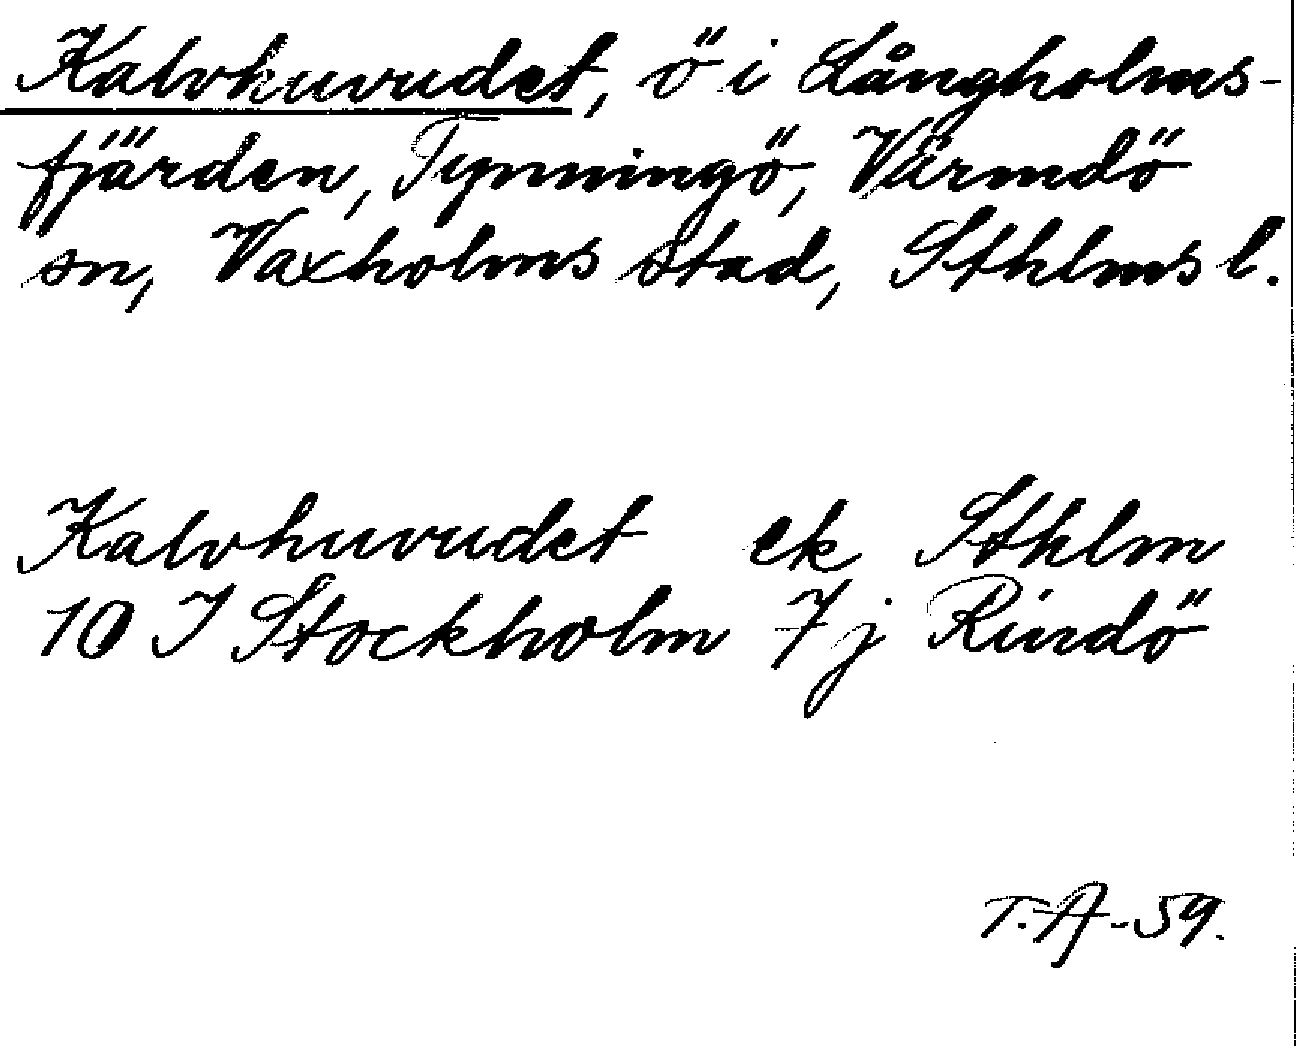 Kalvhuvudet, ö i Långholms-
fjärden, Tynningö, Värmdö
sn, Vaxholms stad, Sthlms l.
Kalvhuvudet ek Sthlm
10 I Stockholm 7 j Rindö
T.A-59.